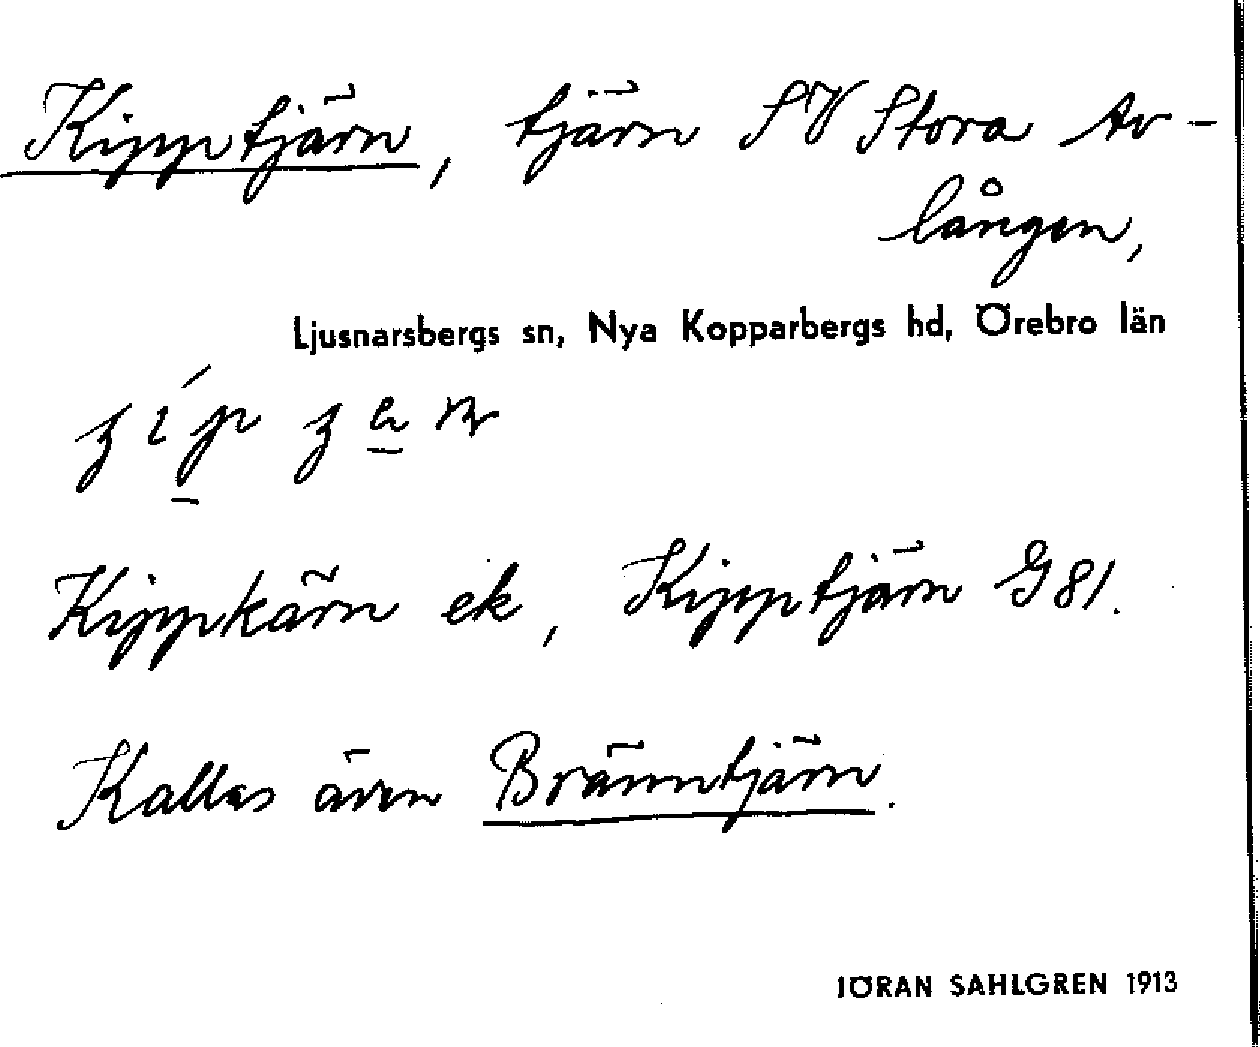 Kipptjärn, tjärn SV Stora Av-
lången,
Ljusnarsbergs sn, Nya Kopparbergs hd, Örebro län
Kippkärn ek, Kipptjärn G81.
Kallas även Bränntjärn.
JÖRAN SAHLGREN 1913